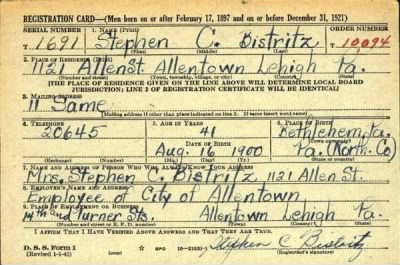 REGISTRATION CARD—(Men born on or after February 17, 1897 and on or before December 31, 1921)
SERIAL NUMBER 1. NAME (Print) ORDER NUMBER
T 1691 Stephen C. Bistritz T 10094
(First) (Middle) (Last)
2. PLACE OF RESIDENCE (Print)
1121 Allen St. Allentown Lehigh Pa.
(Number and street) (Town, township, village, or city) (County) (State)
[THE PLACE OF RESIDENCE GIVEN ON THE LINE ABOVE WILL DETERMINE LOCAL BOARD
JURISDICTION; LINE 2 OF REGISTRATION CERTIFICATE WILL BE IDENTICAL]
3. MAILING ADDRESS
11 Same
[Mailing address if other than place indicated on line 2. If same insert word same]
4. TELEPHONE 5. AGE IN YEARS 6. PLACE OF BIRTH
20645 41 Bethlehem, Pa.
DATE OF BIRTH (Town or county)
Aug. 16 1900 Pa. (North. Co)
(Exchange) (Number) (Mo.) (Day) (Yr.) (State or country)
7. NAME AND ADDRESS OF PERSON WHO WILL ALWAYS KNOW YOUR ADDRESS
Mrs. Stephen C. Bistritz 1121 Allen St.
8. EMPLOYER'S NAME AND ADDRESS
Employee of City of Allentown
9. PLACE OF EMPLOYMENT OR BUSINESS
14th and Turner Sts. Allentown Lehigh Pa.
(Number and street or R. F. D. number) (Town) (County) (State)
I AFFIRM THAT I HAVE VERIFIED ABOVE ANSWERS AND THAT THEY ARE TRUE.
D. S. S. Form 1 GPO Stephen C Bistritz
(Revised 1-1-42) (Registrant's signature)